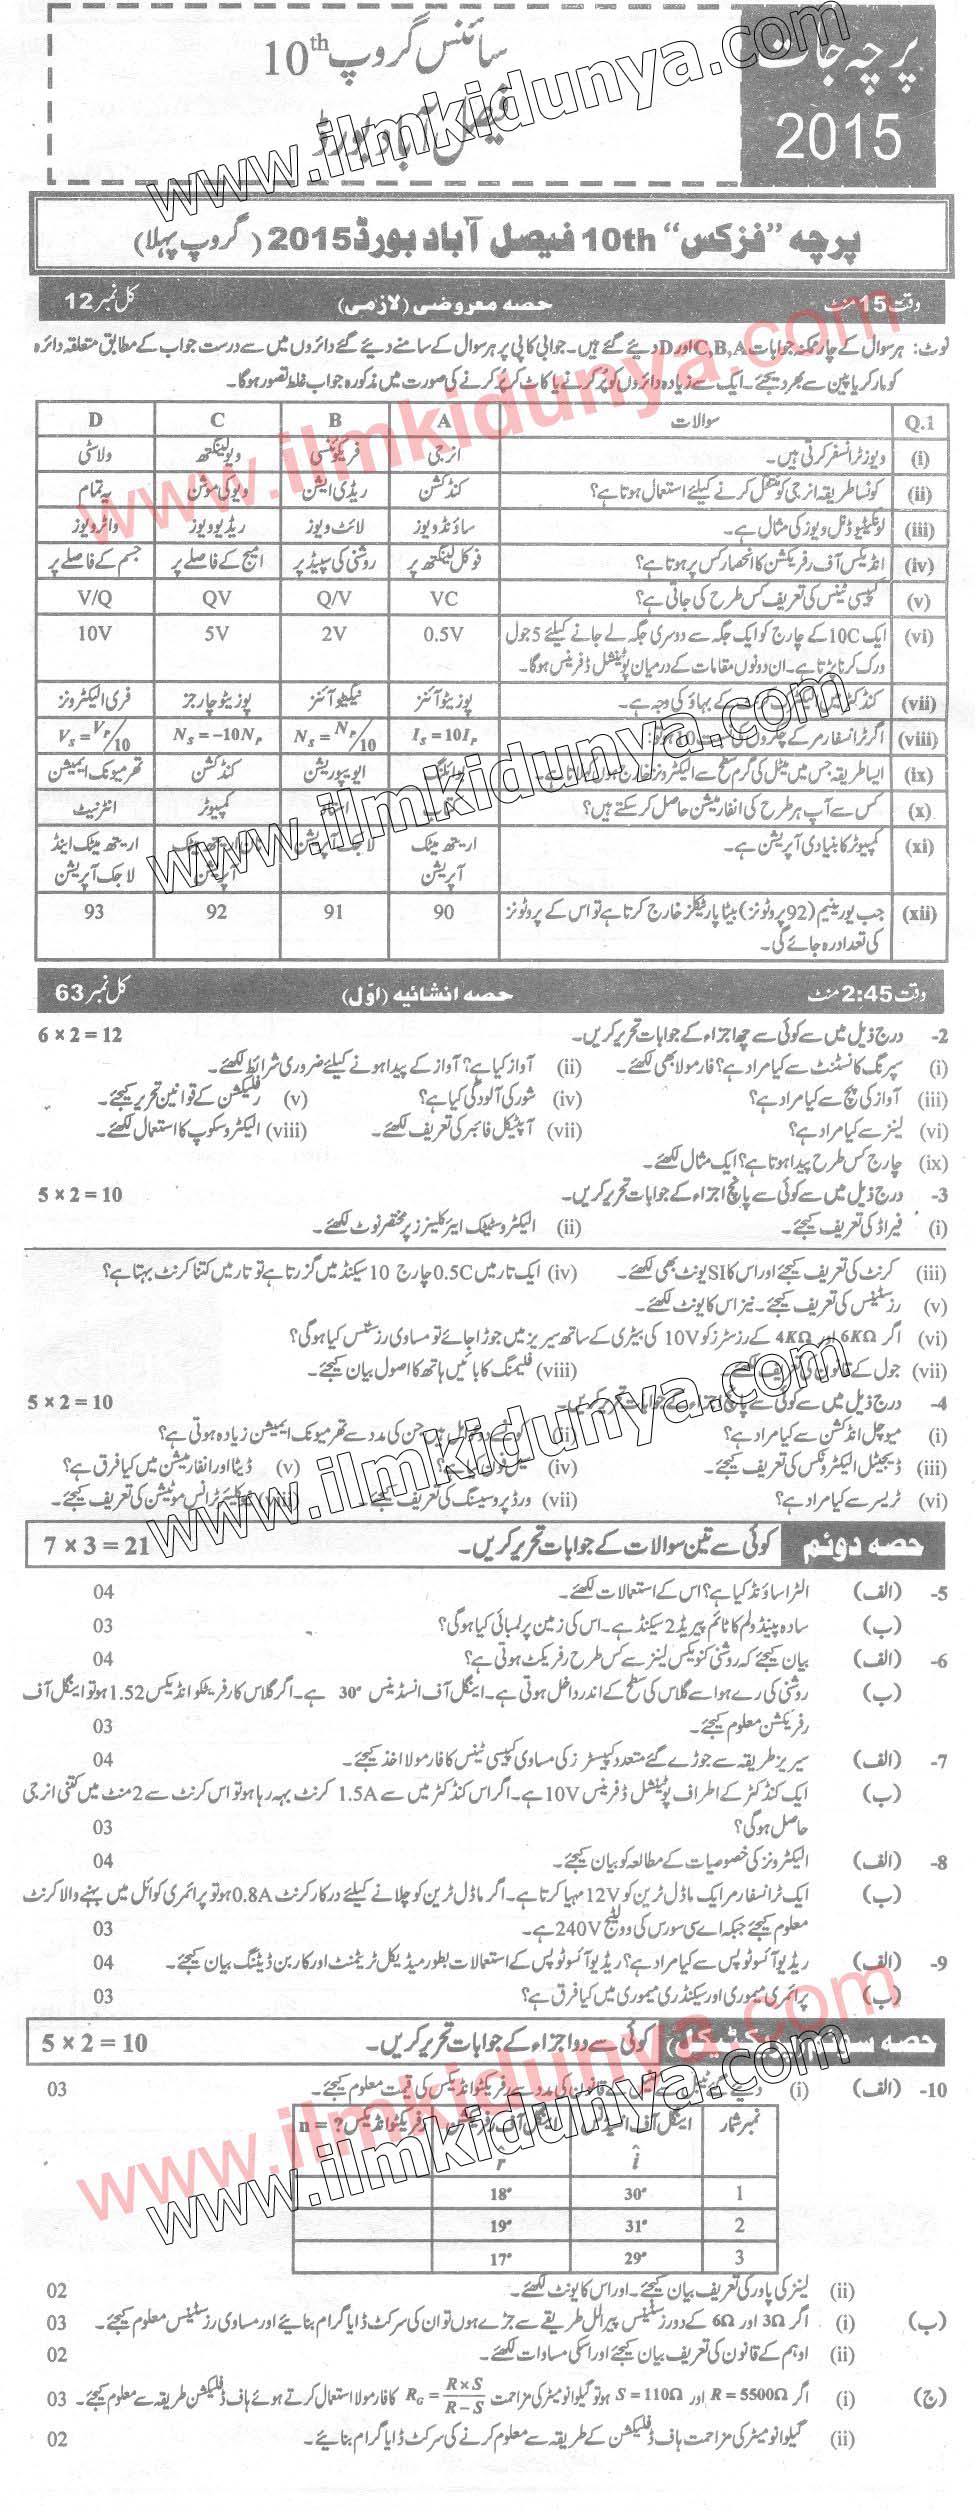 پرچہ جات
2015
سائنس گروپ 10th
فیصل آباد بورڈ
www.ilmkidunya.com
پرچہ ”فزکس“ 10th فیصل آباد بورڈ 2015 (گروپ پہلا)
وقت 15 منٹ حصہ معروضی (لازمی) کل نمبر 12
نوٹ: ہر سوال کے چار ممکنہ جوابات C,B,A اور D دیے گئے ہیں۔ جوابی کاپی پر ہر سوال کے سامنے دیے گئے دائروں میں سے درست جواب کے مطابق متعلقہ دائرہ
کو مارکر یا پین سے بھر دیجئے۔ ایک سے زیادہ دائروں کو پُر کرنے یا کاٹ کر پُر کرنے کی صورت میں مذکورہ جواب غلط تصور ہوگا۔
Q.1 سوالات A B C D
(i) ویوز ٹرانسفر کرتی ہیں۔ انرجی فریکوئنسی ویولینگتھ ولاسٹی
(ii) کونسا طریقہ انرجی کو منتقل کرنے کیلئے استعمال ہوتا ہے؟ کنڈکشن ریڈی ایشن ویو کی موشن یہ تمام
(iii) لونگیٹیوڈنل ویوز کی مثال ہے۔ ساؤنڈ ویوز لائٹ ویوز ریڈیو ویوز واٹر ویوز
(iv) انڈیکس آف رفریکشن کا انحصار کس پر ہوتا ہے؟ فوکل لینگتھ پر روشنی کی سپیڈ پر امیج کے فاصلے پر جسم کے فاصلے پر
(v) کپیسی ٹینس کی تعریف کس طرح کی جاتی ہے؟ VC Q/V QV V/Q
(vi) ایک 10C کے چارج کو ایک جگہ سے دوسری جگہ لے جانے کیلئے 5 جول 0.5V 2V 5V 10V
ورک کرنا پڑتا ہے۔ ان دونوں مقامات کے درمیان پوٹینشل ڈفرینس ہوگا۔
(vii) کنڈکٹر میں الیکٹرک کرنٹ کے بہاؤ کی وجہ ہے۔ پوزیٹو آئنز نیگیٹو آئنز پوزیٹو چارجز فری الیکٹرونز
(viii) اگر ٹرانسفارمر کے چکروں کی نسبت 10 ہو تو: Is = 10Ip Ns = Np/10 Ns = −10Np Vs = Vp/10
(ix) ایسا طریقہ جس میں میٹل کی گرم سطح سے الیکٹرونز خارج ہوں کہلاتا ہے۔ بوائلنگ ایویپوریشن کنڈکشن تھرمیونک ایمیشن
(x) کس سے آپ ہر طرح کی انفارمیشن حاصل کر سکتے ہیں؟ کمپیوٹر انٹرنیٹ
(xi) کمپیوٹر کا بنیادی آپریشن ہے۔ اریتھ میٹک لاجک آپریشن نان اریتھ میٹک اریتھ میٹک اینڈ
آپریشن آپریشن لاجک آپریشن
(xii) جب یورینیم (92 پروٹونز) بیٹا پارٹیکلز خارج کرتا ہے تو اس کے پروٹونز 90 91 92 93
کی تعداد رہ جائے گی۔
وقت 2:45 منٹ حصہ انشائیہ (اوّل) کل نمبر 63
2- درج ذیل میں سے کوئی سے چھ اجزاء کے جوابات تحریر کریں۔ 6 × 2 = 12
(i) سپرنگ کانسٹنٹ سے کیا مراد ہے؟ فارمولا بھی لکھئے۔ (ii) آواز کیا ہے؟ آواز کے پیدا ہونے کیلئے ضروری شرائط لکھئے۔
(iii) آواز کی پچ سے کیا مراد ہے؟ (iv) شور کی آلودگی کیا ہے؟ (v) رفلیکشن کے قوانین تحریر کیجئے۔
(vi) لینز سے کیا مراد ہے؟ (vii) آپٹیکل فائبر کی تعریف لکھئے۔ (viii) الیکٹروسکوپ کا استعمال لکھئے۔
(ix) چارج کس طرح پیدا ہوتا ہے؟ ایک مثال لکھئے۔
3- درج ذیل میں سے کوئی سے پانچ اجزاء کے جوابات تحریر کریں۔ 5 × 2 = 10
(i) فیراڈ کی تعریف کیجئے۔ (ii) الیکٹروسٹیٹک ایئر کلینرز پر مختصر نوٹ لکھئے۔
(iii) کرنٹ کی تعریف کیجئے اور اس کا SI یونٹ بھی لکھئے۔ (iv) ایک تار میں 0.5C چارج 10 سیکنڈ میں گزرتا ہے تو تار میں کتنا کرنٹ بہتا ہے؟
(v) رزسٹینس کی تعریف کیجئے۔ نیز اس کا یونٹ لکھئے۔
(vi) اگر 6KΩ اور 4KΩ کے رزسٹرز کو 10V کی بیٹری کے ساتھ سیریز میں جوڑا جائے تو مساوی رزسٹنس کیا ہوگی؟
(vii) جول کے قانون کی تعریف لکھئے۔ (viii) فلیمنگ کا بائیں ہاتھ کا اصول بیان کیجئے۔
4- درج ذیل میں سے کوئی سے پانچ اجزاء کے جوابات تحریر کریں۔ 5 × 2 = 10
(i) میوچل انڈکشن سے کیا مراد ہے؟ (ii) جن کی مدد سے تھرمیونک ایمیشن زیادہ ہوتی ہے؟
(iii) ڈیجیٹل الیکٹرونکس کی تعریف کیجئے۔ (iv) سیل فون کیا ہے؟ (v) ڈیٹا اور انفارمیشن میں کیا فرق ہے؟
(vi) ٹریسر سے کیا مراد ہے؟ (vii) ورڈ پروسیسنگ کی تعریف کیجئے۔ (viii) نیوکلیئر ٹرانس موٹیشن کی تعریف کیجئے۔
حصہ دوئم کوئی سے تین سوالات کے جوابات تحریر کریں۔ 7 × 3 = 21
5- (الف) الٹراساؤنڈ کیا ہے؟ اس کے استعمالات لکھئے۔ 04
(ب) سادہ پینڈولم کا ٹائم پیریڈ 2 سیکنڈ ہے۔ اس کی زمین پر لمبائی کیا ہوگی؟ 03
6- (الف) بیان کیجئے کہ روشنی کنویکس لینز سے کس طرح رفریکٹ ہوتی ہے؟ 04
(ب) روشنی کی رے ہوا سے گلاس کی سطح کے اندر داخل ہوتی ہے۔ اینگل آف انسیڈینس 30° ہے۔ اگر گلاس کا رفریکٹو انڈیکس 1.52 ہو تو اینگل آف
رفریکشن معلوم کیجئے۔ 03
7- (الف) سیریز طریقہ سے جوڑے گئے متعدد کپیسٹرز کی مساوی کپیسی ٹینس کا فارمولا اخذ کیجئے۔ 04
(ب) ایک کنڈکٹر کے اطراف پوٹینشل ڈفرینس 10V ہے۔ اگر اس کنڈکٹر میں سے 1.5A کرنٹ بہہ رہا ہو تو اس کرنٹ سے 2 منٹ میں کتنی انرجی
حاصل ہوگی؟ 03
8- (الف) الیکٹرونز کی خصوصیات کے مطالعہ کو بیان کیجئے۔ 04
(ب) ایک ٹرانسفارمر ایک ماڈل ٹرین کو 12V مہیا کرتا ہے۔ اگر ماڈل ٹرین کو چلانے کیلئے درکار کرنٹ 0.8A ہو تو پرائمری کوائل میں بہنے والا کرنٹ
معلوم کیجئے جبکہ اے سی سورس کی وولٹیج 240V ہے۔ 03
9- (الف) ریڈیو آئسوٹوپس سے کیا مراد ہے؟ ریڈیو آئسوٹوپس کے استعمالات بطور میڈیکل ٹریٹمنٹ اور کاربن ڈیٹنگ بیان کیجئے۔ 04
(ب) پرائمری میموری اور سیکنڈری میموری میں کیا فرق ہے؟ 03
حصہ سوئم (پریکٹیکل) کوئی سے دو اجزاء کے جوابات تحریر کریں۔ 5 × 2 = 10
10- (الف) (i) کے قانون کی مدد سے رفریکٹو انڈیکس کی قیمت معلوم کیجئے۔ 03
نمبر شمار اینگل آف انسیڈینس اینگل آف رفریکشن رفریکٹو انڈیکس n = ?
î r̂
1 30° 18°
2 31° 19°
3 29° 17°
(ii) لینز کی پاور کی تعریف بیان کیجئے۔ اور اس کا یونٹ لکھئے۔ 02
(ب) (i) اگر 3Ω اور 6Ω کے دو رزسٹینس پیرالل طریقے سے جڑے ہوں تو ان کی سرکٹ ڈایاگرام بنائیے اور مساوی رزسٹینس معلوم کیجئے۔ 03
(ii) اوہم کے قانون کی تعریف بیان کیجئے اور اسکی مساوات لکھئے۔ 02
(ج) (i) اگر R = 5500Ω اور S = 110Ω ہو تو گیلوانومیٹر کی مزاحمت RG = R×S / R−S کا فارمولا استعمال کرتے ہوئے ہاف ڈفلیکشن طریقہ سے معلوم کیجئے۔ 03
(ii) گیلوانومیٹر کی مزاحمت ہاف ڈفلیکشن کے طریقہ سے معلوم کرنے کی سرکٹ ڈایاگرام بنائیے۔ 02